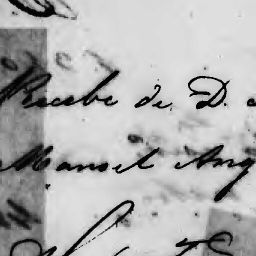 Recebe de D.
Manoel Ang